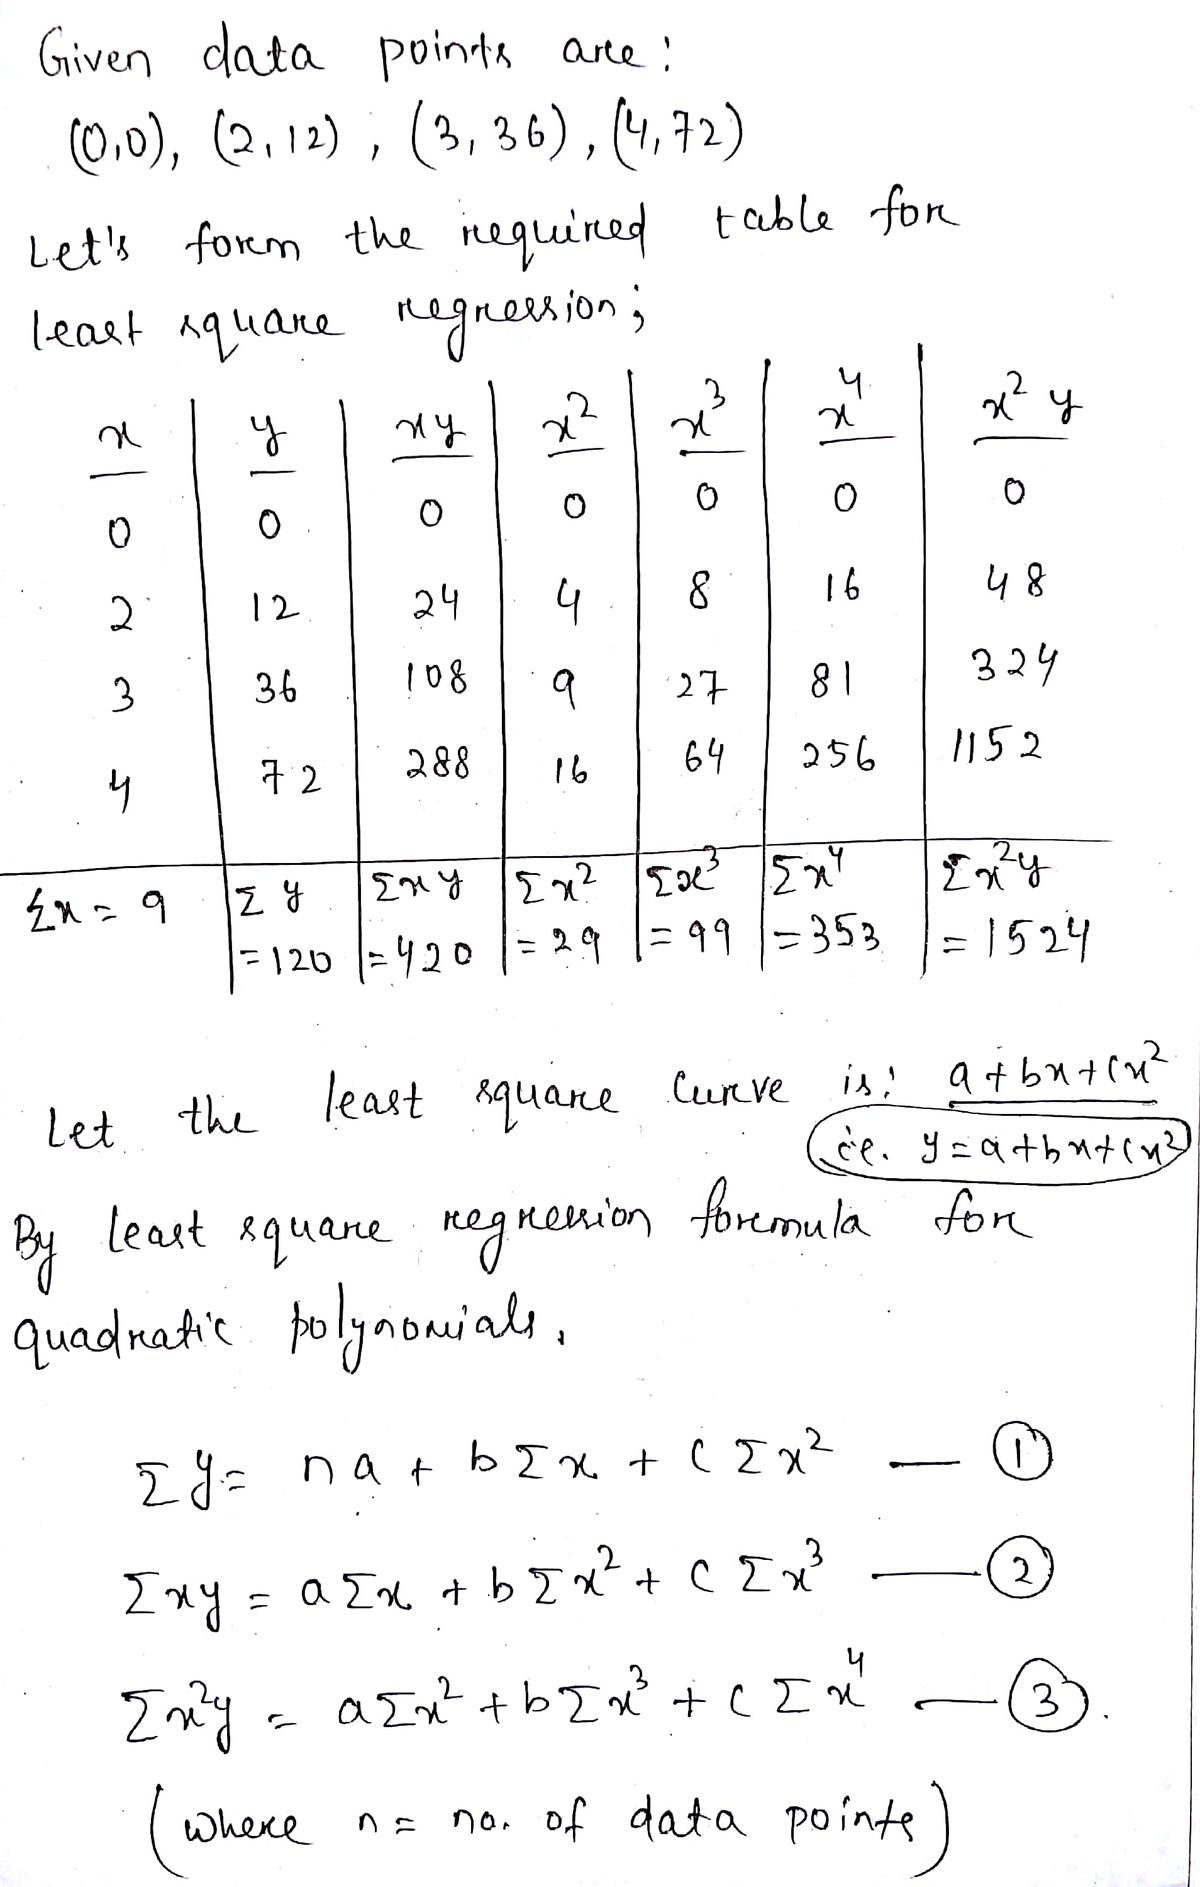 Given data points are:
(0,0), (2,12), (3,36), (4,72)
Let's form the required table for
least square regression;
x | y | xy | x² | x³ | x⁴ | x² y
0 | 0 | 0 | 0 | 0 | 0 | 0
2 | 12 | 24 | 4 | 8 | 16 | 48
3 | 36 | 108 | 9 | 27 | 81 | 324
4 | 72 | 288 | 16 | 64 | 256 | 1152
Σx = 9 | Σy | Σxy | Σx² | Σx³ | Σx⁴ | Σx²y
=120 | =420 | =29 | =99 | =353 | =1524
Let the least square curve is: a+bx+cx²
i.e. y=a+bx+cx²
By least square regression formula for
quadratic polynomials,
Σy = na + bΣx + cΣx² — ①
Σxy = aΣx + bΣx² + cΣx³ — ②
Σx²y = aΣx² + bΣx³ + cΣx⁴ — ③.
(where n = no. of data points)